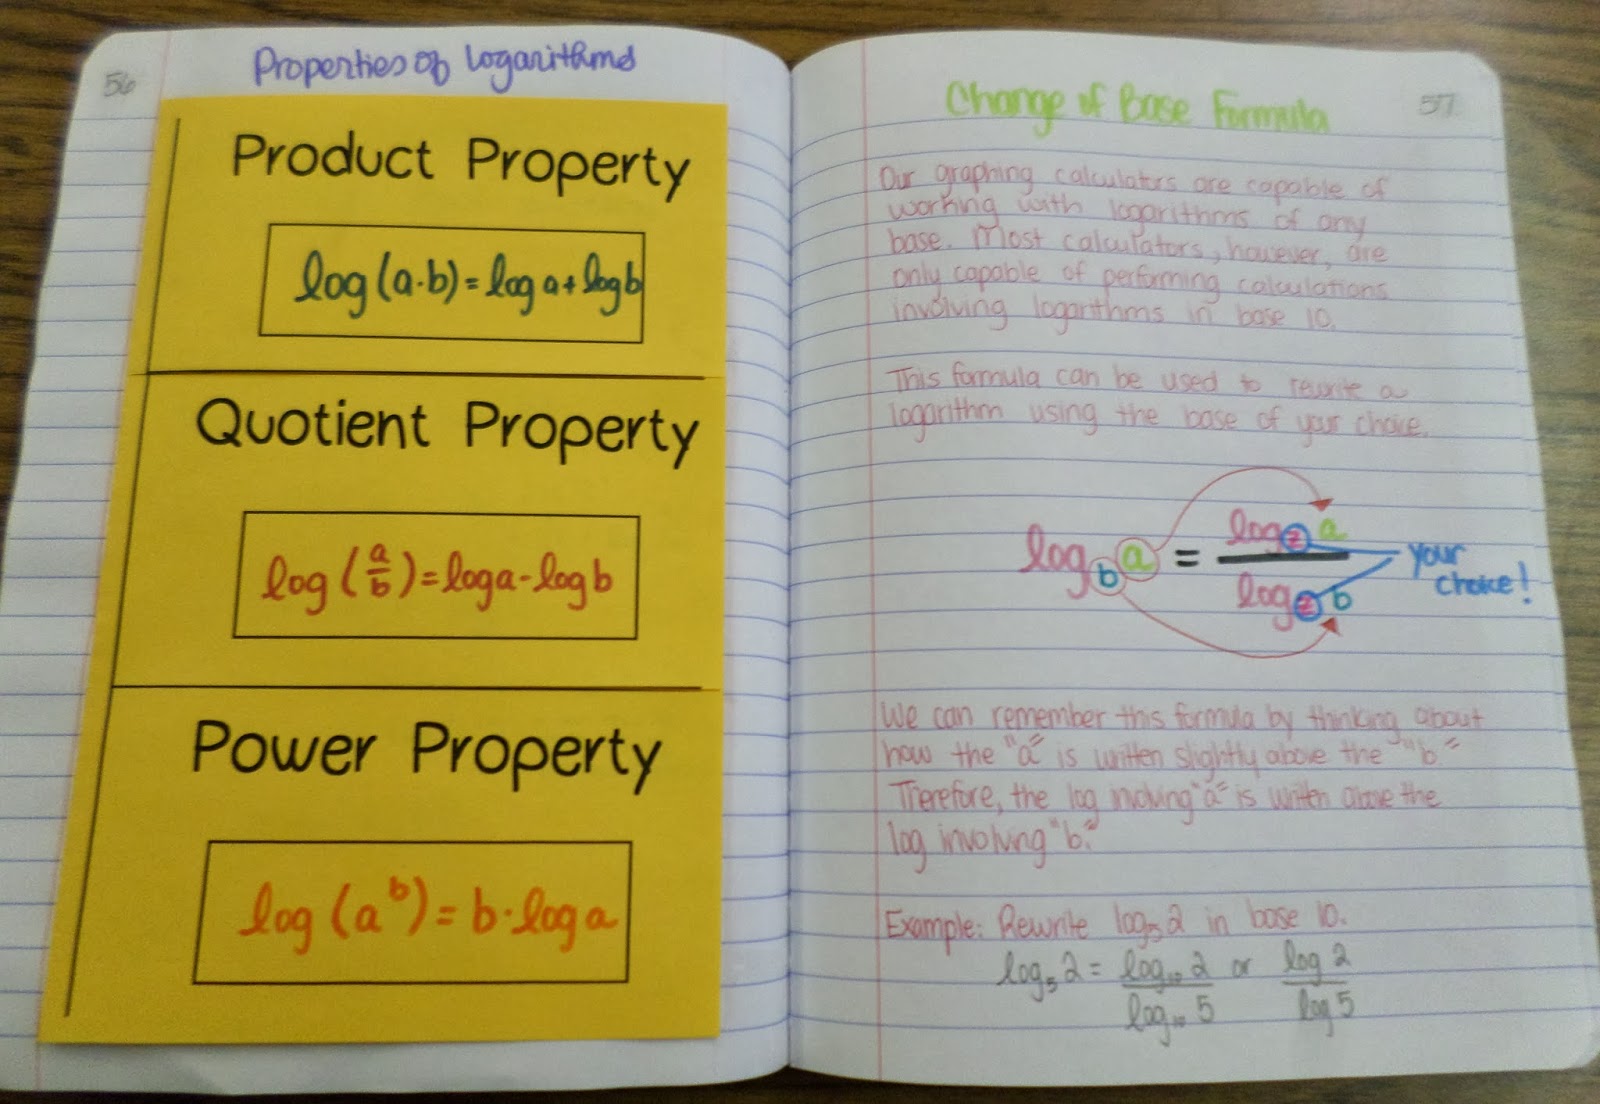 56
Properties of Logarithms
Product Property
log(a·b)=log a+log b
Quotient Property
log(a/b)=log a-log b
Power Property
log(a^b)=b·log a
Change of Base Formula
57
Our graphing calculators are capable of
working with logarithms of any
base. Most calculators, however, are
only capable of performing calculations
involving logarithms in base 10.
This formula can be used to rewrite a
logarithm using the base of your choice.
log_b a = log_z a / log_z b
your
choice!
We can remember this formula by thinking about
how the "a" is written slightly above the "b."
Therefore, the log involving "a" is written above the
log involving "b."
Example: Rewrite log₅2 in base 10.
log₅2 = log₁₀2 / log₁₀5 or log 2 / log 5